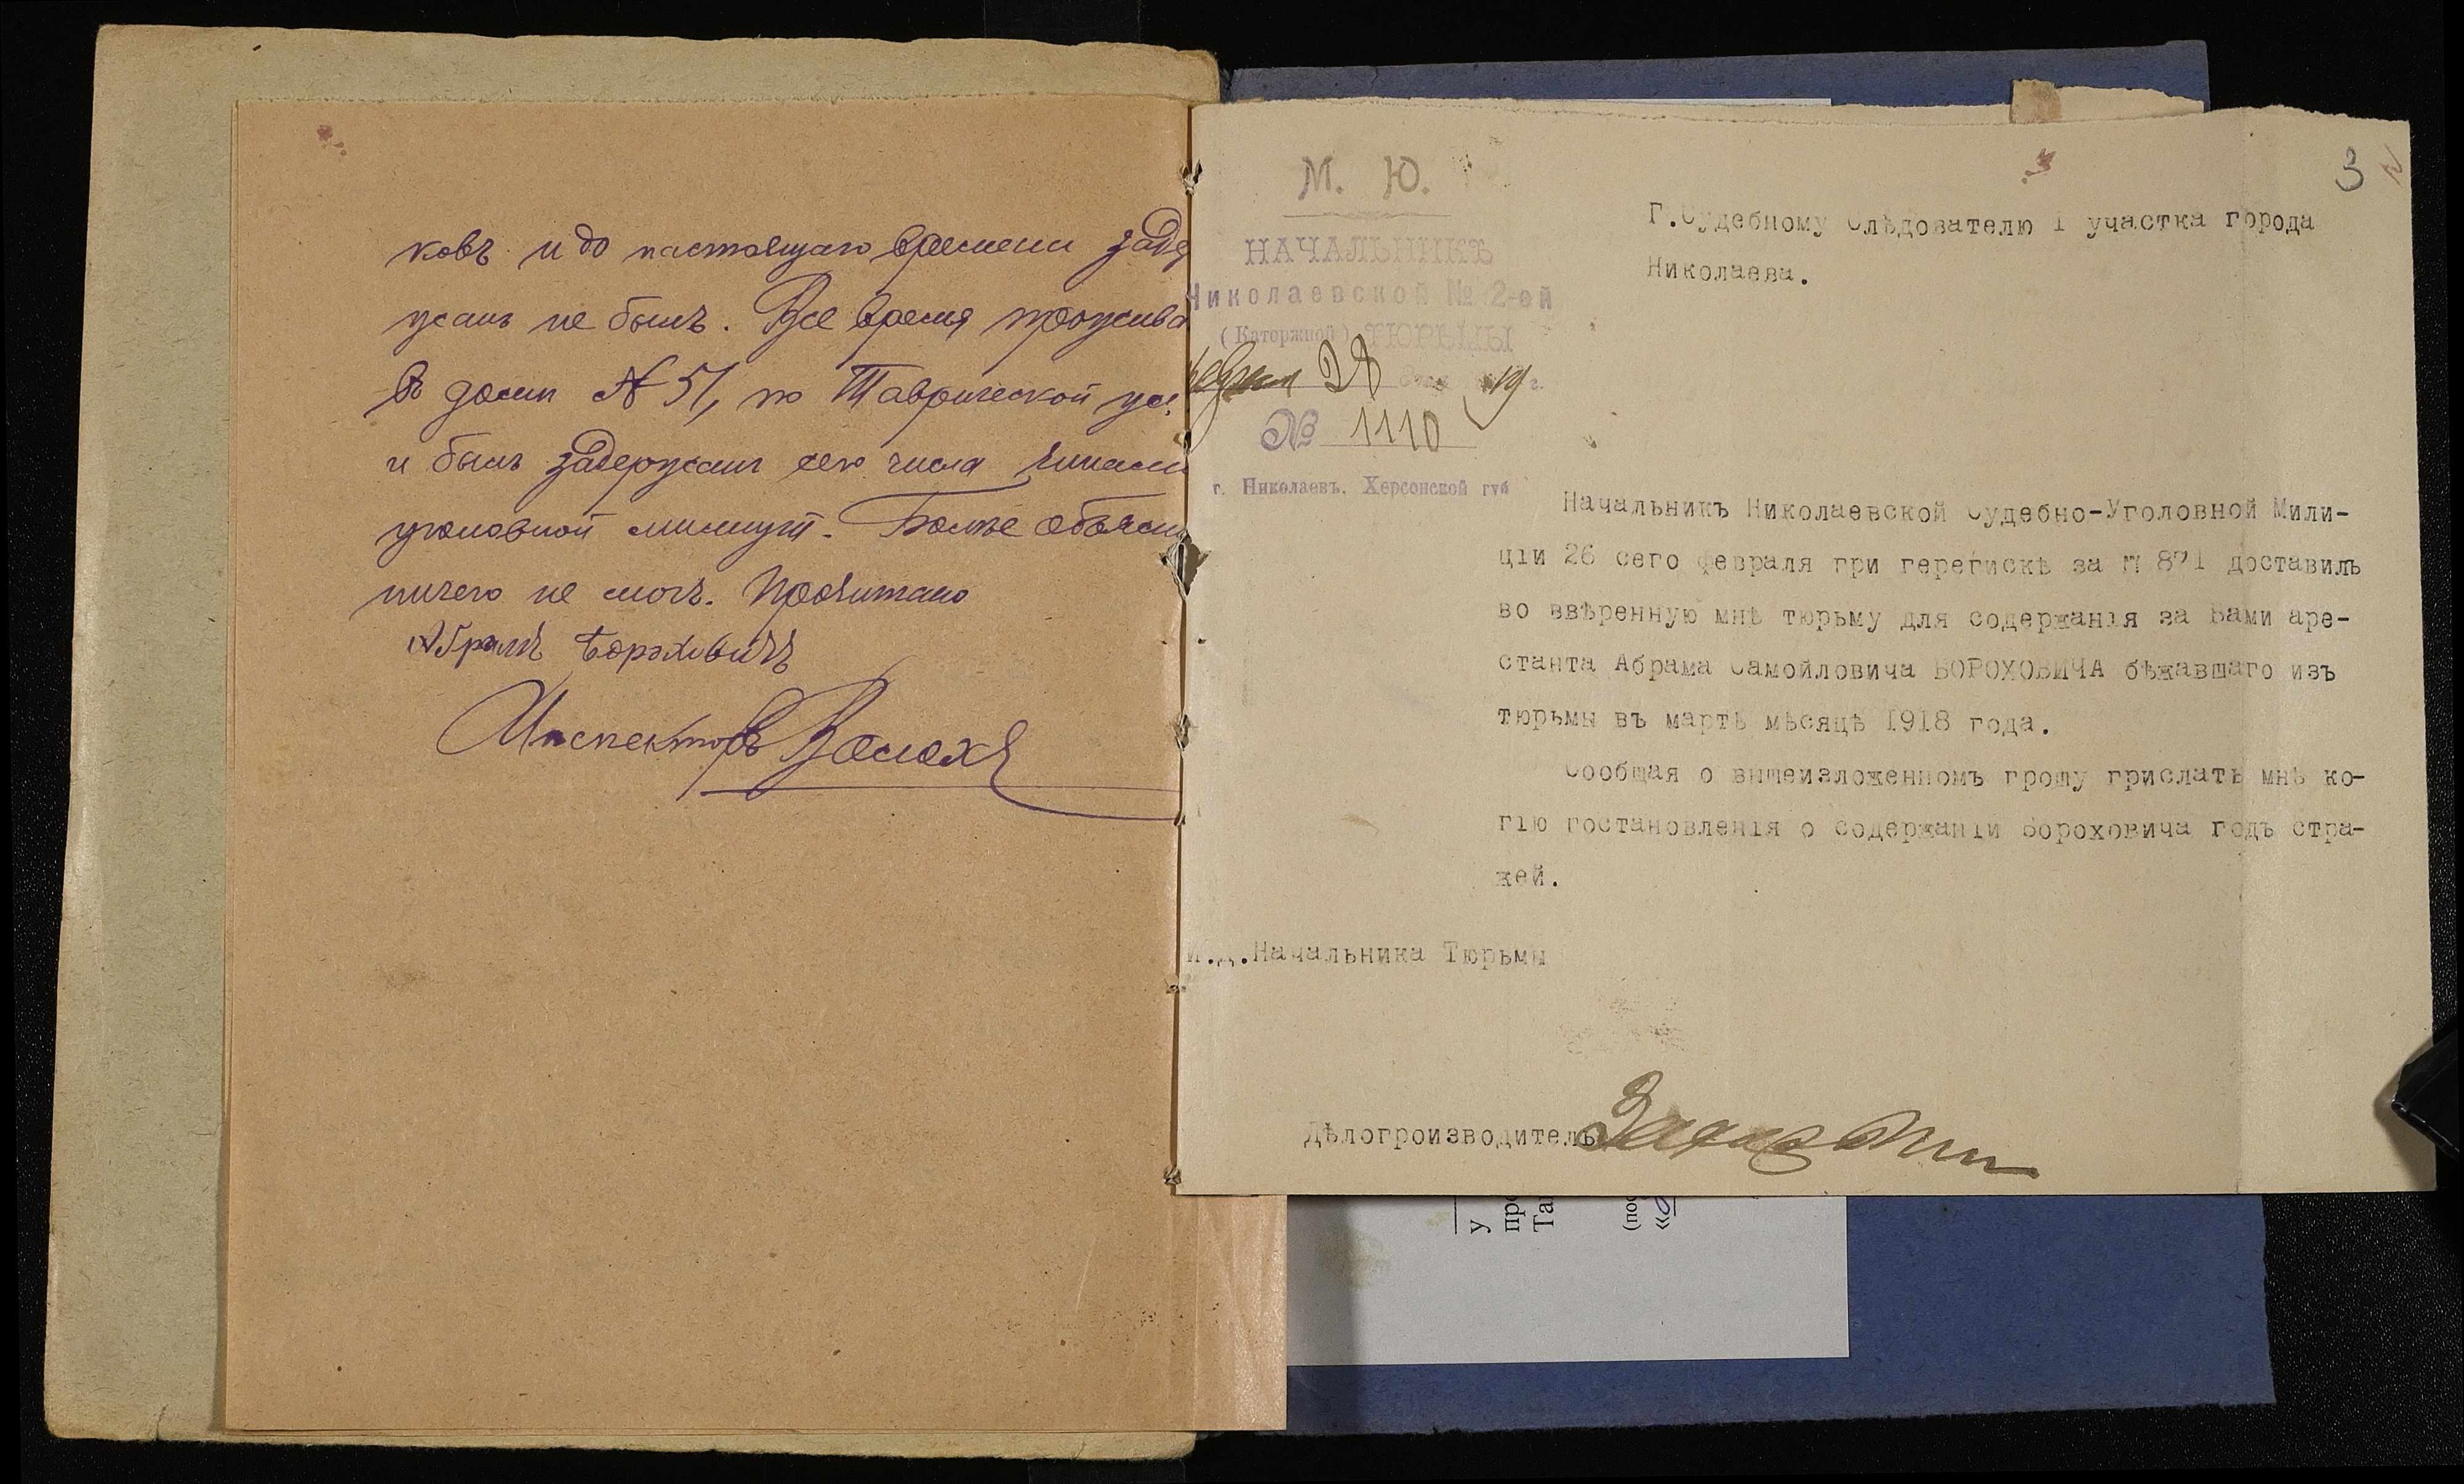 ковъ и до настоящаго времени заде
жанъ не былъ. Все время прожива
въ домѣ № 51, по Таврической ул.
и былъ задержанъ сего числа чинами
уголовной милиціи. Болѣе объясни
ничего не могъ. Прочитано
Абрамъ Бороховичъ
Инспекторъ
3
М. Ю.
НАЧАЛЬНИКЪ
Николаевской № 2-ой
(Каторжной) ТЮРЬМЫ
28 дня 1919 г.
№ 1110
г. Николаевъ, Херсонской губ
Г.Судебному Слѣдователю I участка города
Николаева.
Начальникъ Николаевской Судебно-Уголовной Мили-
ціи 26 сего февраля при перепискѣ за № 871 доставилъ
во ввѣренную мнѣ тюрьму для содержанія за Вами аре-
станта Абрама Самойловича БОРОХОВИЧА бѣжавшаго изъ
тюрьмы въ мартѣ мѣсяцѣ 1918 года.
Сообщая о вышеизложенномъ прошу прислать мнѣ ко-
пію постановленія о содержаніи Бороховича подъ стра-
жей.
И.д.Начальника Тюрьмы
Дѣлопроизводитель
У
пр
Та
(по